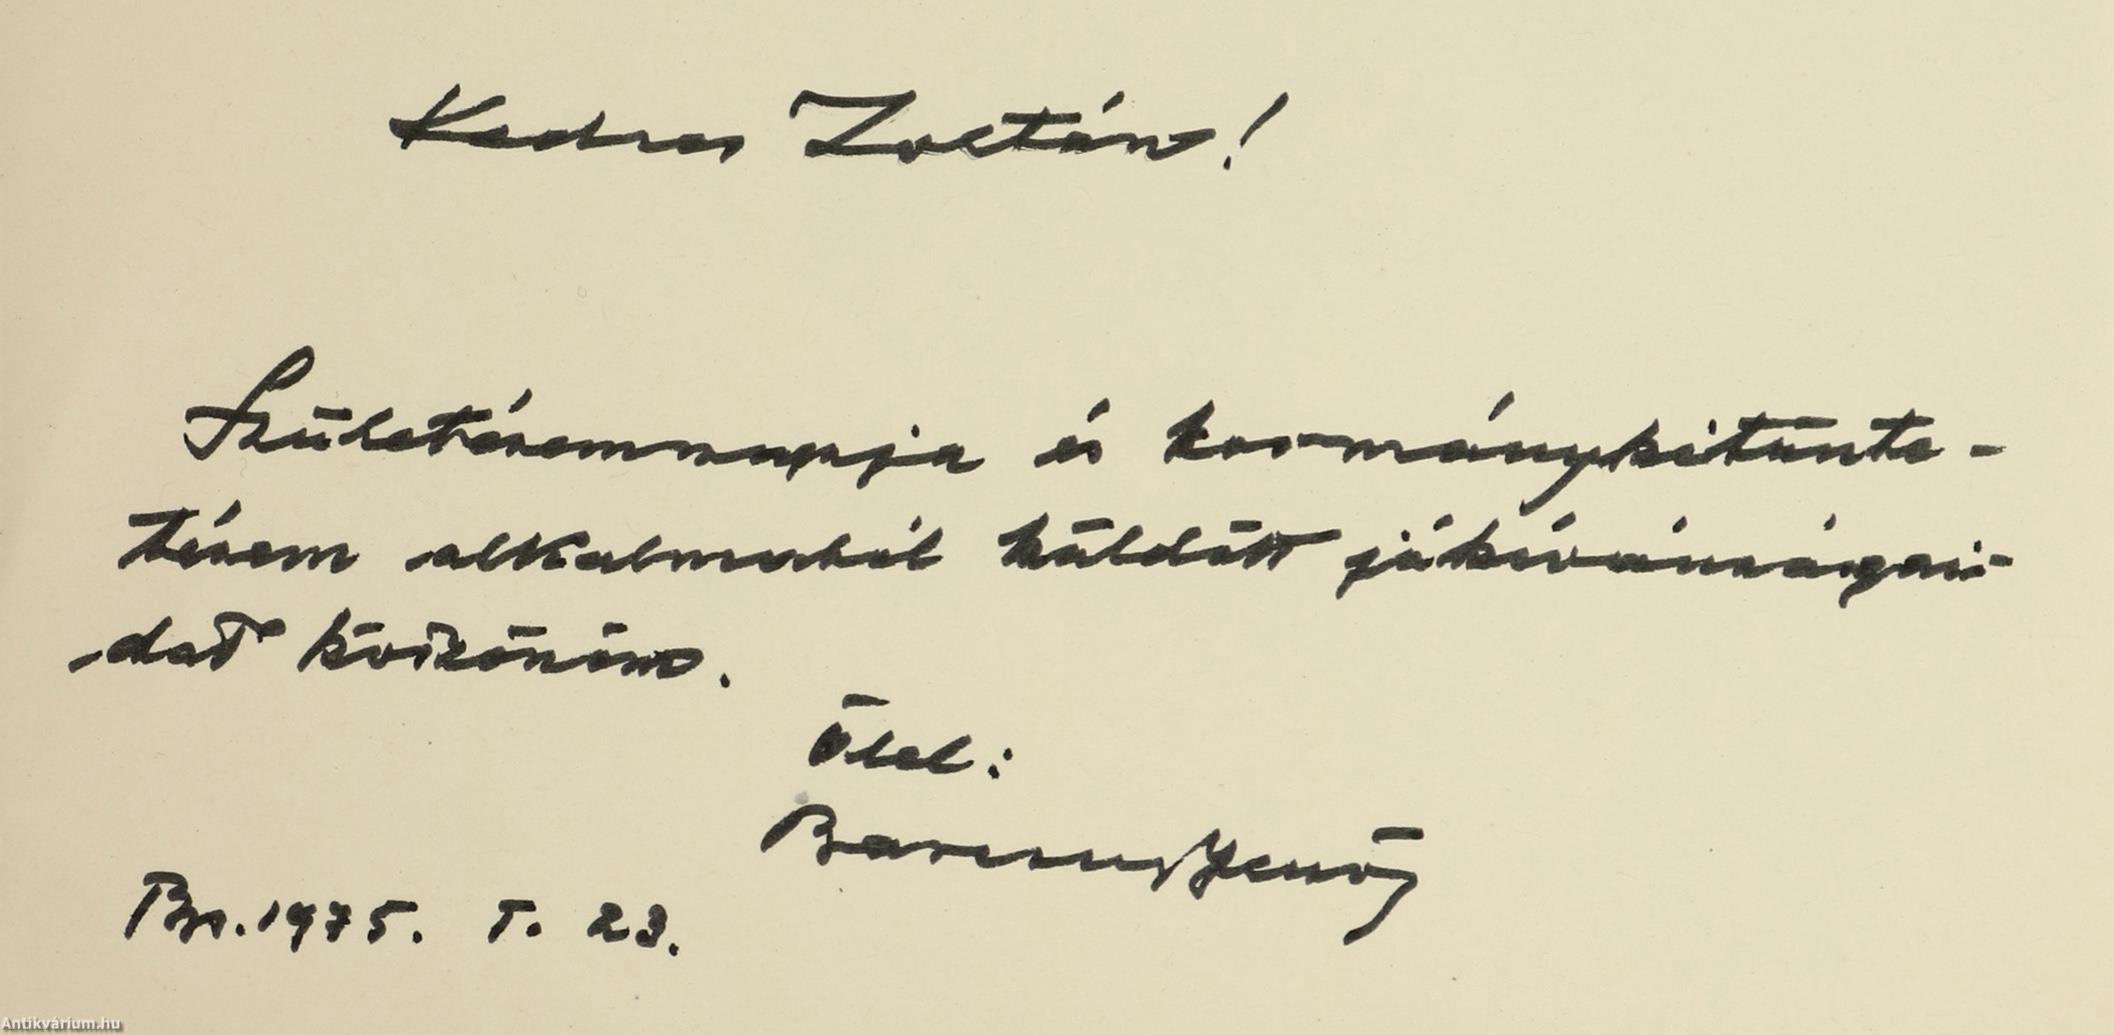 Kedves Zoltán!
Születésemnapja és kormánykitünte-
tésem alkalmából küldött jókívánságai-
dat köszönöm.
Ölel:
Barcsay Jenő
Bp. 1975. I. 23.
Antikvárium.hu